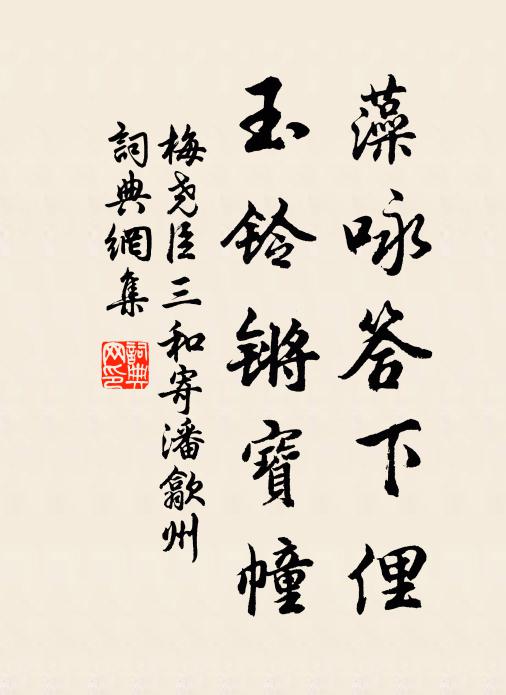 藻咏答下俚
玉铃锵寶幢
梅尧臣三和寄潘歙州
詞典網集
詞典网印